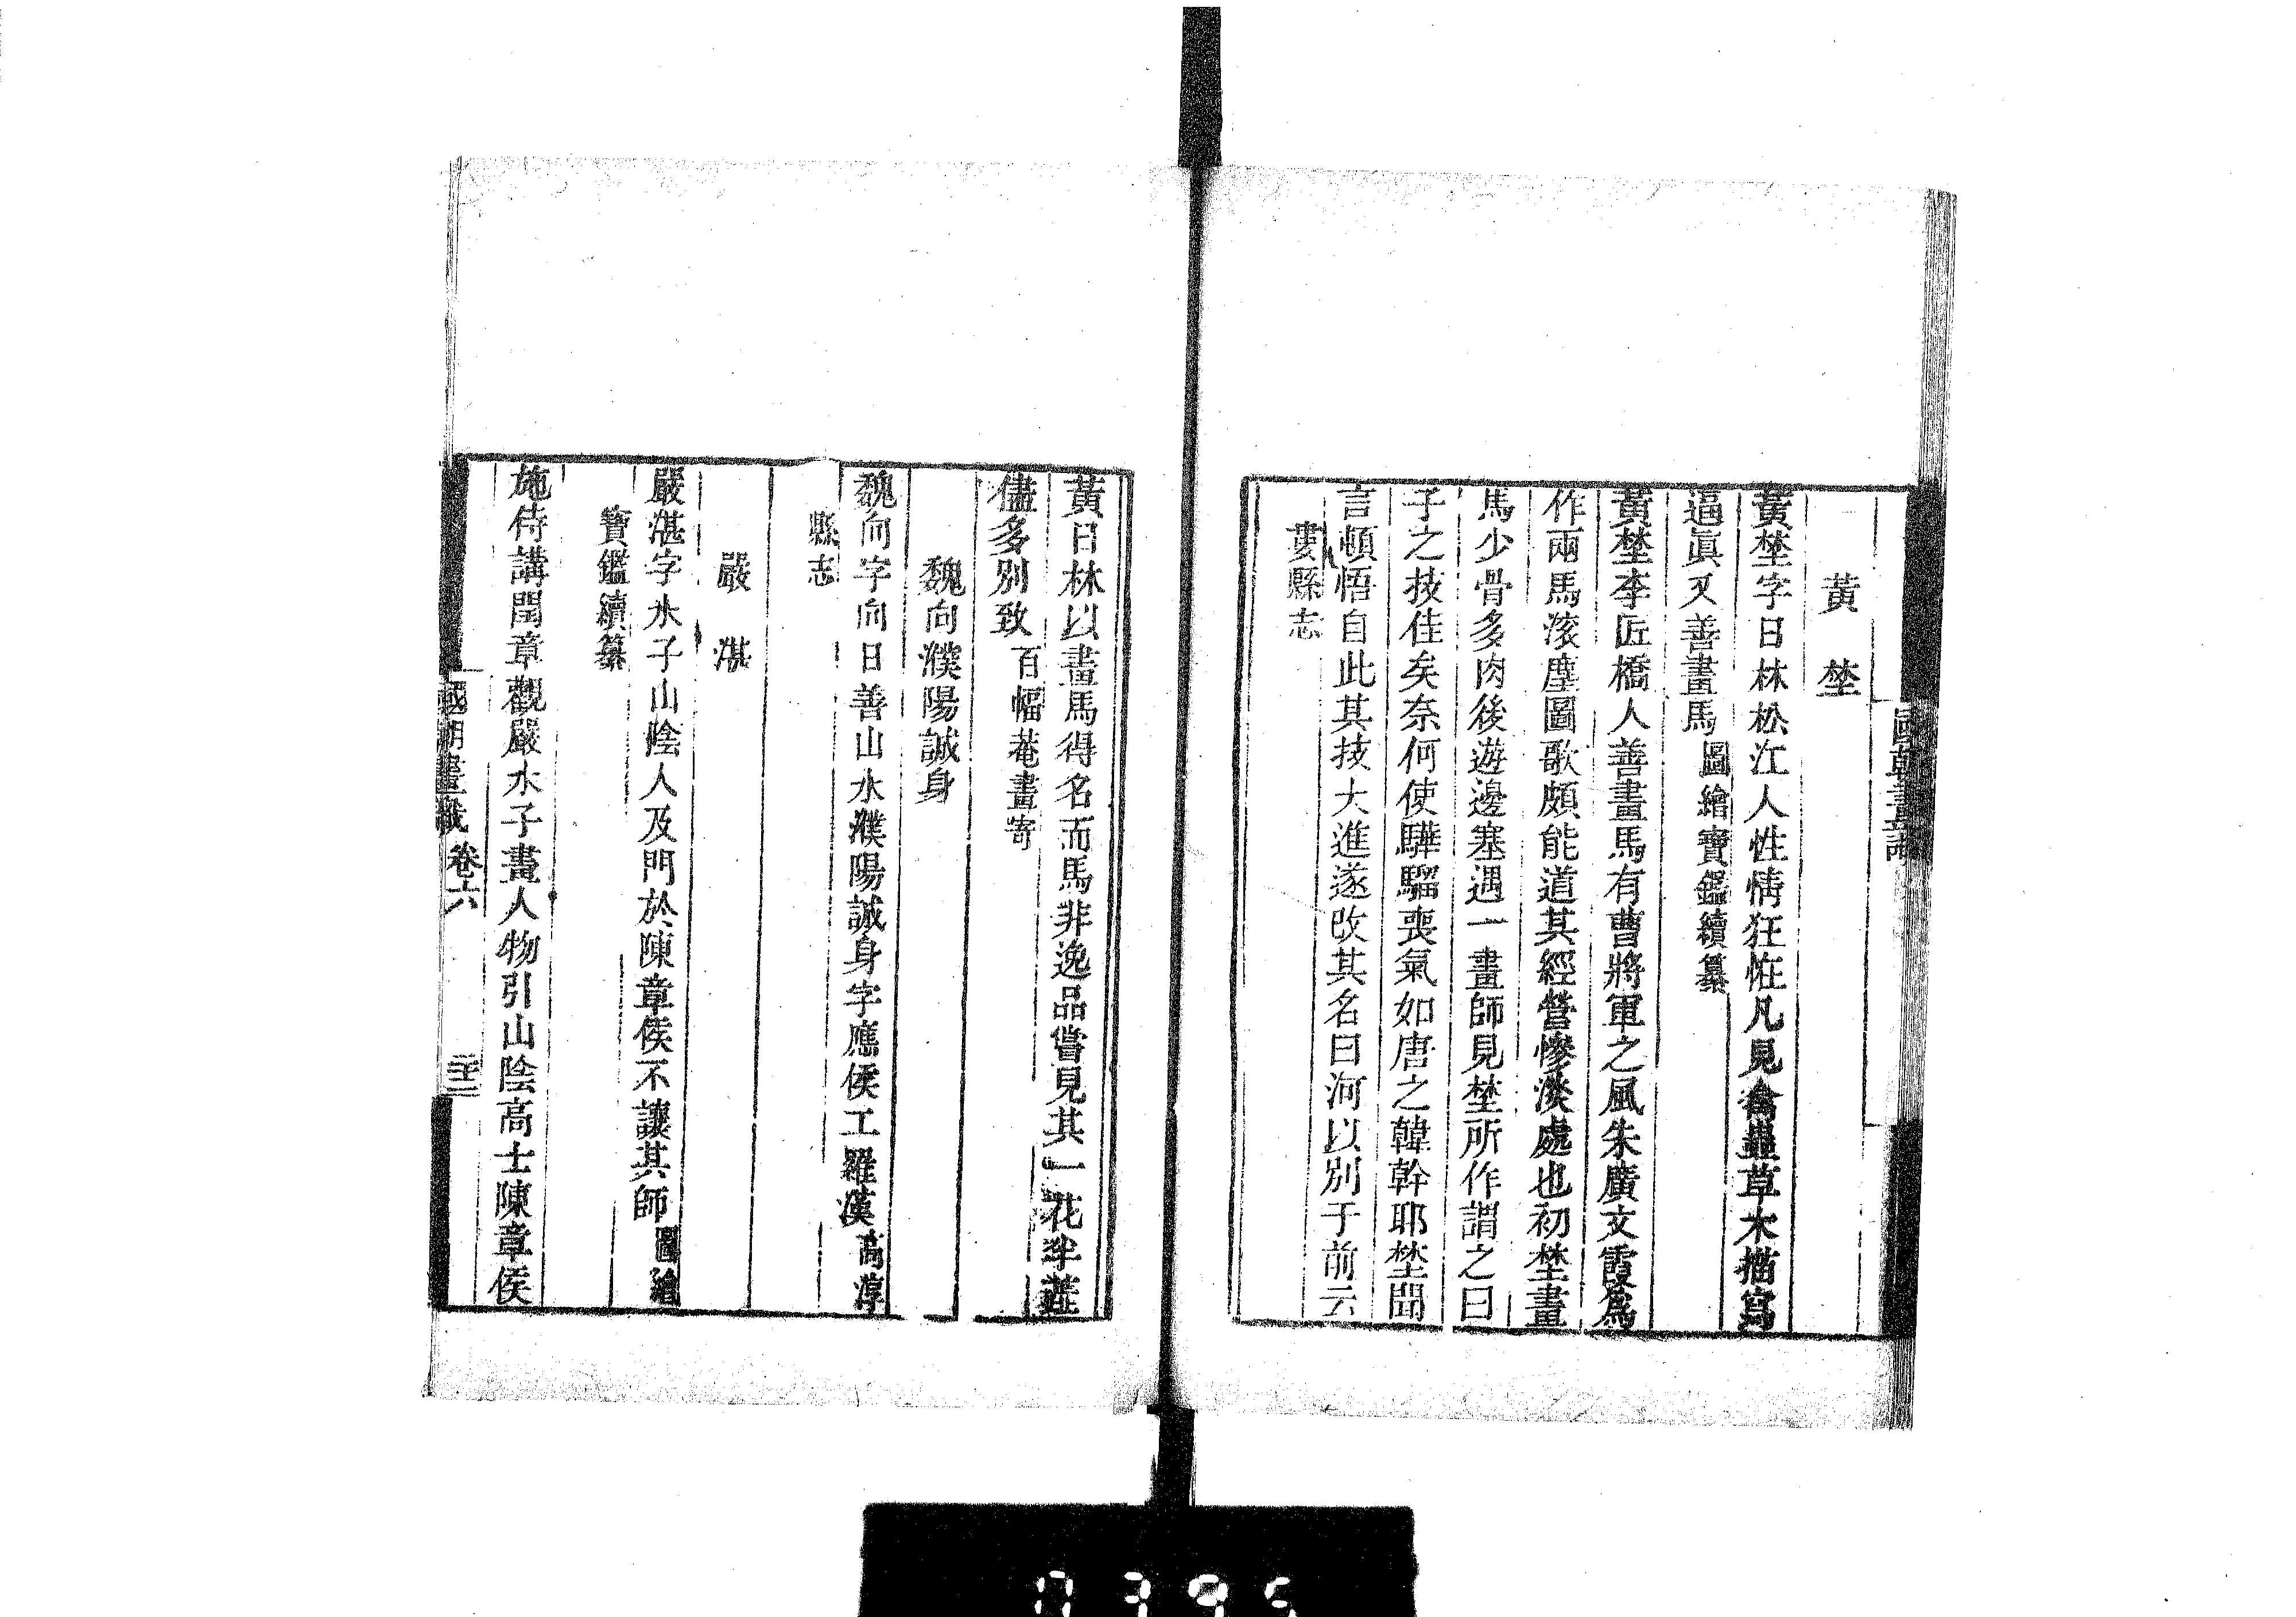 國朝畫識
黃　埜
黃埜字日林松江人性情狂怪凡見禽蟲草木描寫
逼眞又善畫馬圖繪寶鑑續纂
黃埜李匠橋人善畫馬有曹將軍之風朱廣文霞爲
作兩馬滾塵圖歌頗能道其經營慘淡處也初埜畫
馬少骨多肉後遊邊塞遇一畫師見埜所作謂之曰
子之技佳矣奈何使驊騮喪氣如唐之韓幹耶埜聞
言頓悟自此其技大進遂改其名曰河以別于前云
婁縣志
黃日林以畫馬得名而馬非逸品嘗見其一花半莖
儘多別致百幅菴畫寄
魏向濮陽誠身
魏向字向日善山水濮陽誠身字應侯工羅漢高淳
縣志
嚴　湛
嚴湛字水子山陰人及門於陳章侯不讓其師圖繪
寶鑑續纂
施侍講閏章觀嚴水子畫人物引山陰高士陳章侯
國朝畫識　卷六　二十三
0395